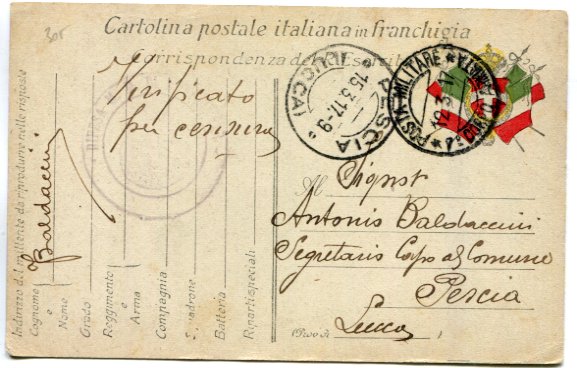 305
Cartolina postale italiana in franchigia
Corrispondenza del R. Esercito
Verificato
per censura
PESCIA
(LUCCA)
15.3.17.-9
POSTA MILITARE
Indirizzo del mittente da riprodurre nelle risposte
Cognome e Nome
Baldaccini
Grado
Reggimento e Arma
Compagnia
Squadrone
Batteria
Riparti speciali
Al Signor
Antonio Baldaccini
Segretario Capo al Comune
Pescia
(Prov. di Lucca)